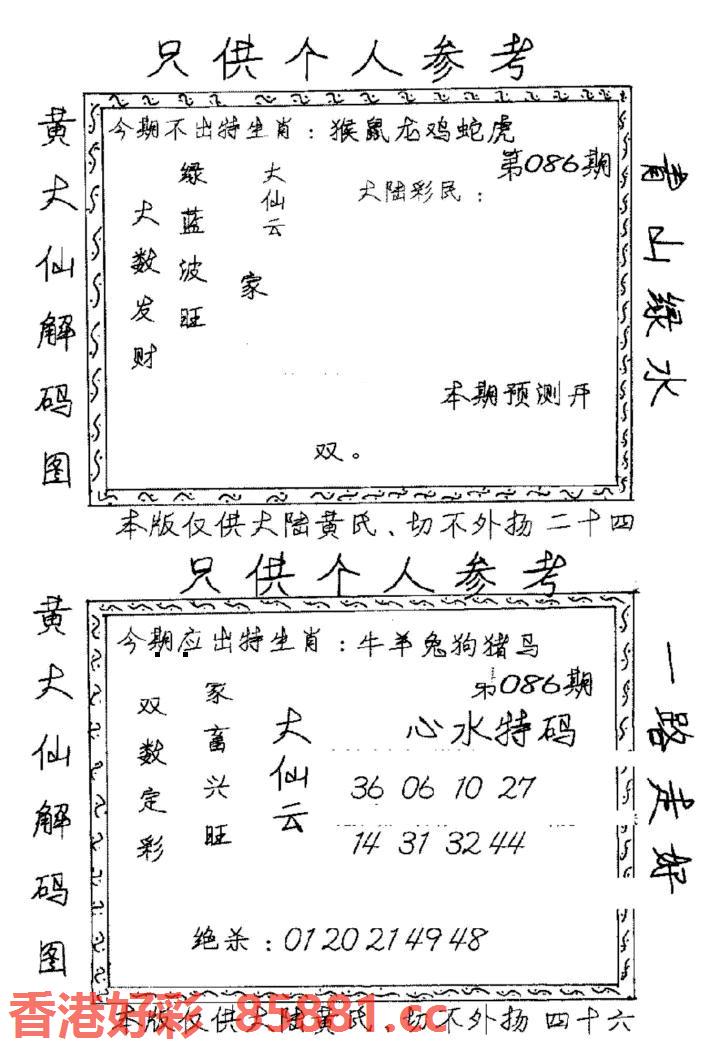 只供个人参考
黄大仙解码图
今期不出特生肖：猴鼠龙鸡蛇虎
第086期
大陆彩民：
大仙云
家
绿蓝波旺
大数发财
本期预测开
双。
青山绿水
本版仅供大陆黄氏、切不外扬 二十四
只供个人参考
黄大仙解码图
今期应出特生肖：牛羊兔狗猪马
第086期
心水特码
36 06 10 27
14 31 32 44
大仙云
家畜兴旺
双数定彩
绝杀：01 20 21 49 48
一路走好
本版仅供大陆黄氏、切不外扬 四十六
香港好彩 85881.cc